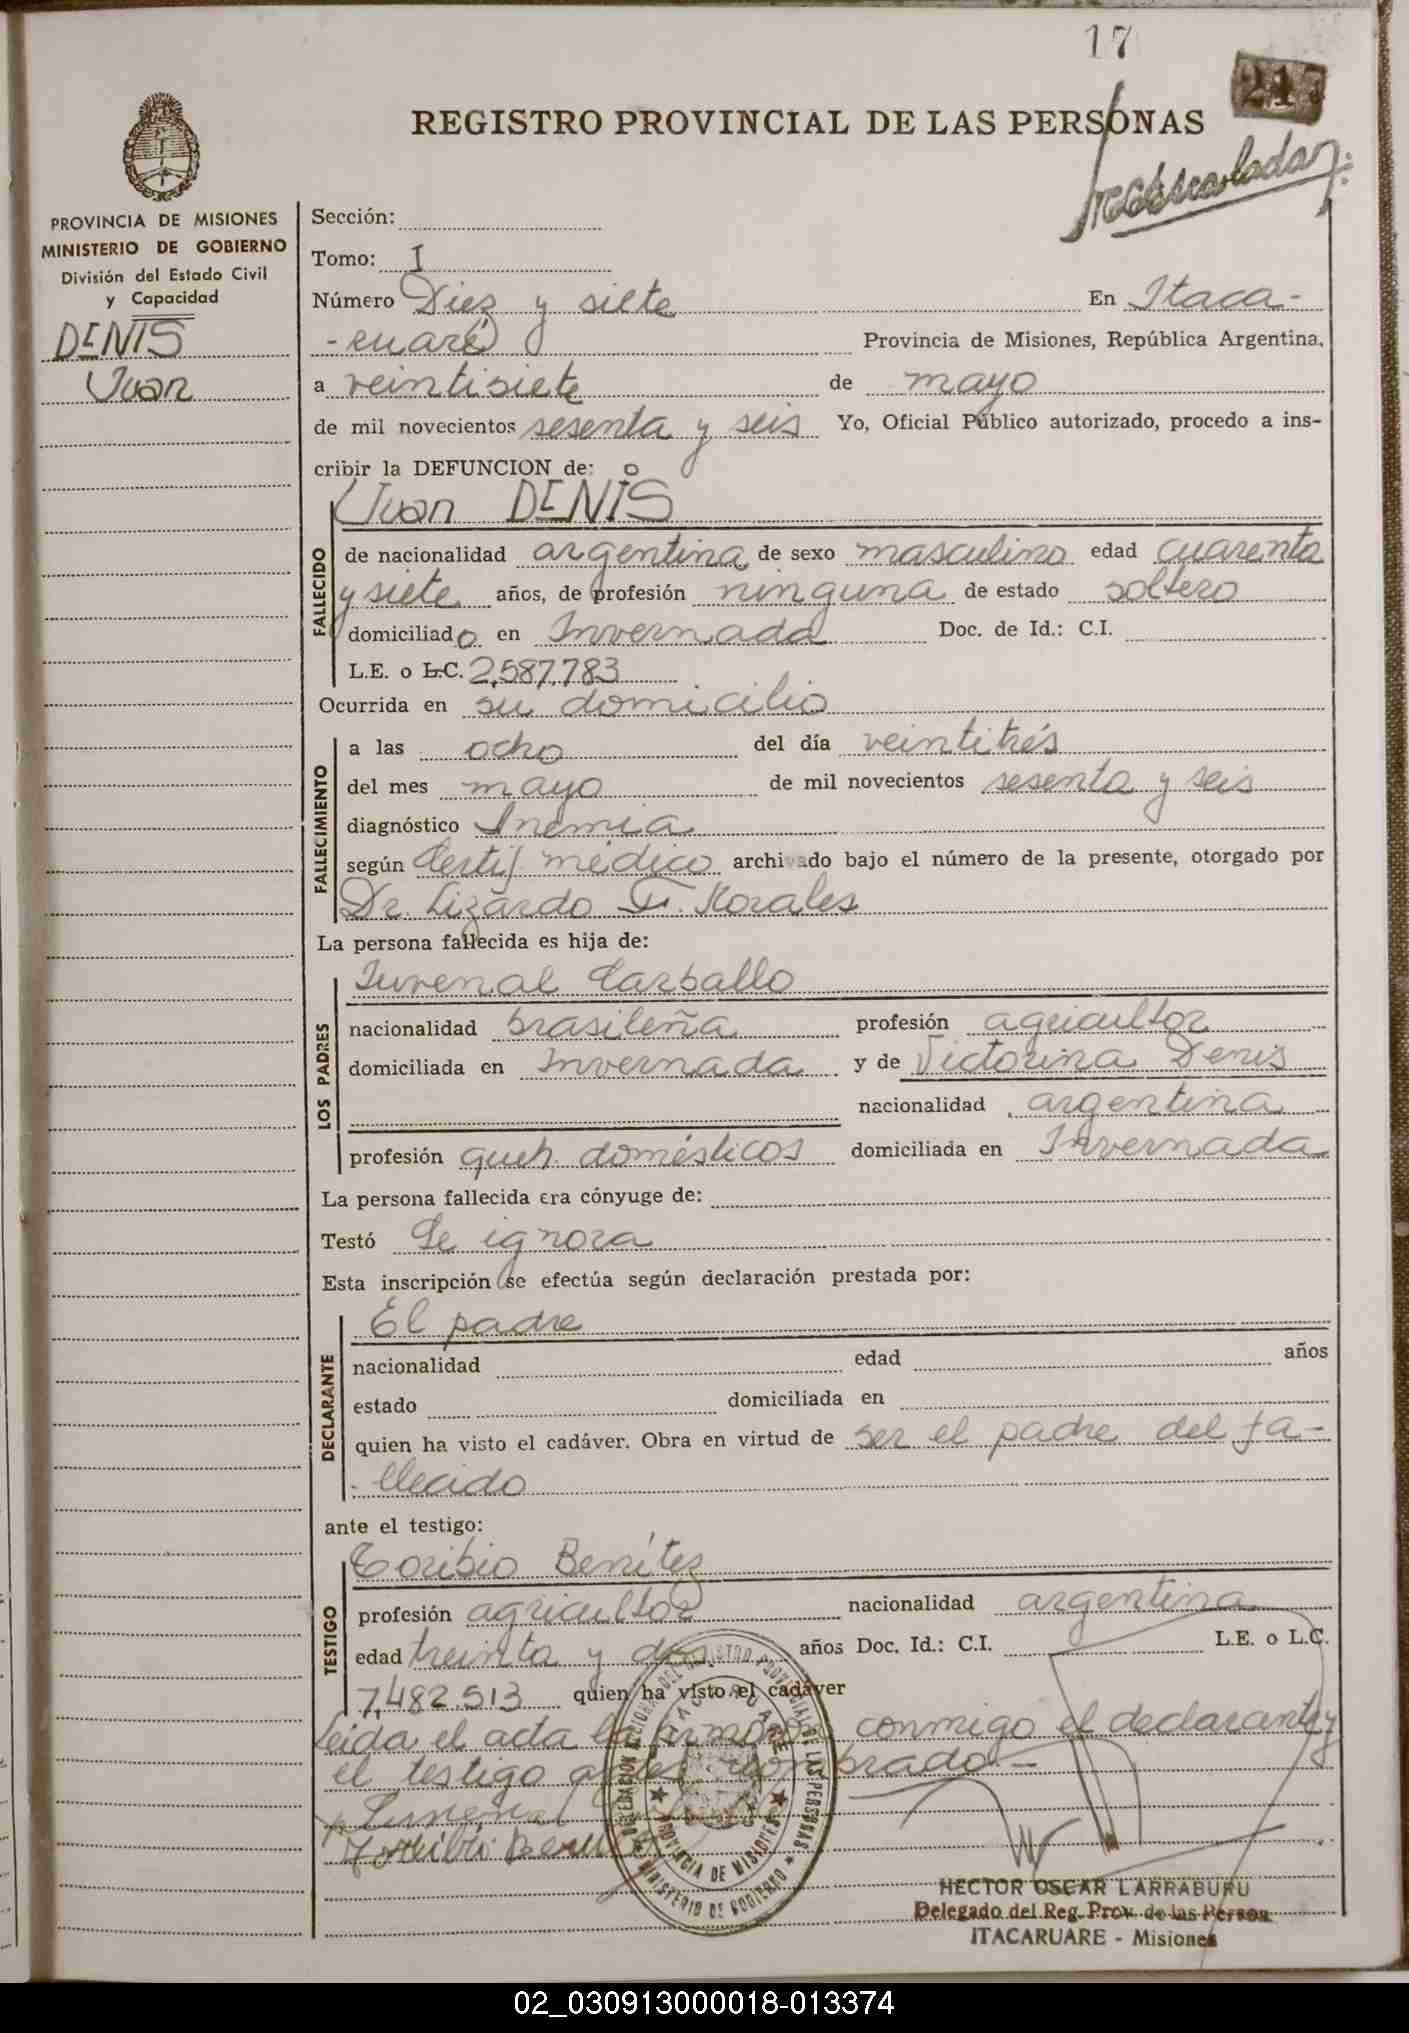 17
217
REGISTRO PROVINCIAL DE LAS PERSONAS
PROVINCIA DE MISIONES
MINISTERIO DE GOBIERNO
División del Estado Civil
y Capacidad
DENIS
Juan
Sección:
Tomo: I
Número Diez y siete En Itaca-
-ruaré Provincia de Misiones, República Argentina,
a veintisiete de mayo
de mil novecientos sesenta y seis Yo, Oficial Público autorizado, procedo a ins-
cribir la DEFUNCION de:
Juan DENIS
FALLECIDO
de nacionalidad argentina de sexo masculino edad cuarenta
y siete años, de profesión ninguna de estado soltero
domiciliado en Invernada Doc. de Id.: C.I.
L.E. o L.C. 2,587,783
Ocurrida en su domicilio
FALLECIMIENTO
a las ocho del día veintitrés
del mes mayo de mil novecientos sesenta y seis
diagnóstico Anemia
según Certif. médico archivado bajo el número de la presente, otorgado por
Dr. Lizardo F. Morales
La persona fallecida es hija de:
LOS PADRES
Juvenal Carballo
nacionalidad brasileña profesión agricultor
domiciliada en Invernada y de Victorina Denis
nacionalidad argentina
profesión queh. domésticos domiciliada en Invernada
La persona fallecida era cónyuge de:
Testó Se ignora
Esta inscripción se efectúa según declaración prestada por:
DECLARANTE
El padre
nacionalidad edad años
estado domiciliada en
quien ha visto el cadáver. Obra en virtud de ser el padre del fa-
-llecido
ante el testigo:
TESTIGO
Toribio Benítez
profesión agricultor nacionalidad argentina
edad treinta y dos años Doc. Id.: C.I. L.E. o L.C.
7,482.513 quien ha visto el cadáver
Leida el acta la firmaron conmigo el declarante y
el testigo antes nombrado.-
Juvenal
Toribio Benitez
PROVINCIA DE MISIONES
MINISTERIO DE GOBIERNO
HECTOR OSCAR LARRABURU
Delegado del Reg. Prov. de las Person
ITACARUARE - Misiones
02_030913000018-013374